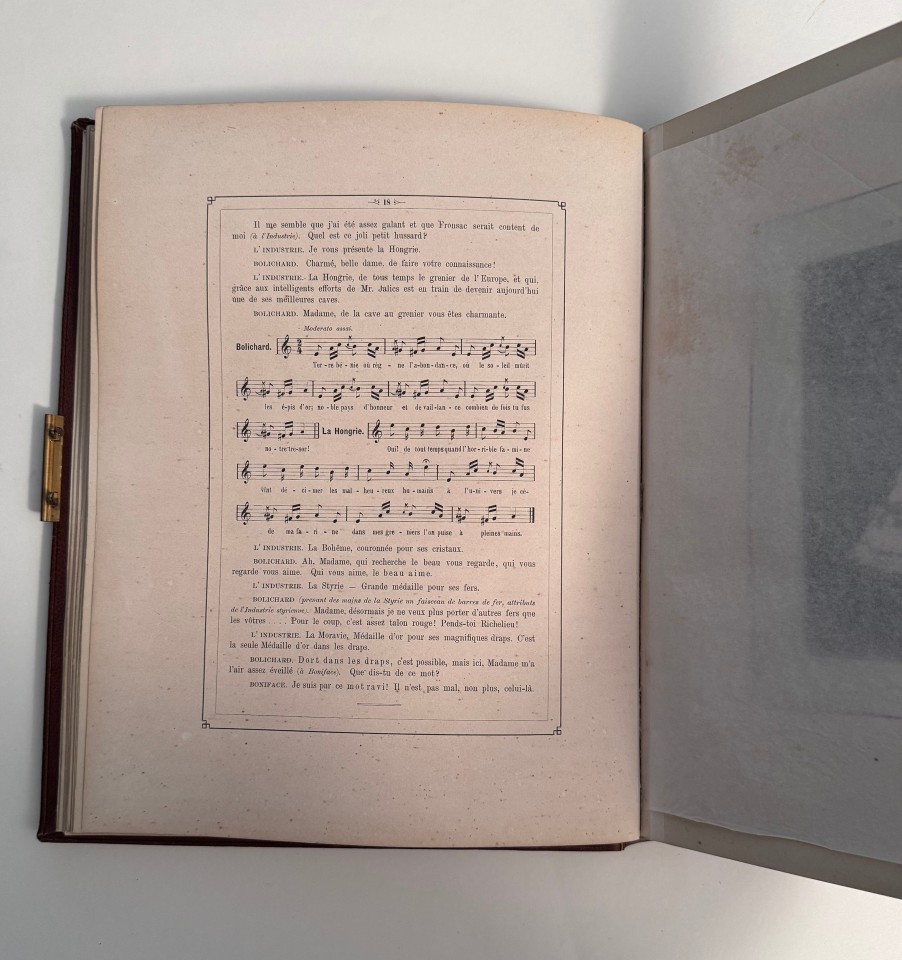 18
Il me semble que j'ai été assez galant et que Fronsac serait content de
moi (à l'Industrie). Quel est ce joli petit hussard?
L'INDUSTRIE. Je vous présente la Hongrie.
BOLICHARD. Charmé, belle dame, de faire votre connaissance!
L'INDUSTRIE. La Hongrie, de tous temps le grenier de l'Europe, et qui,
grâce aux intelligents efforts de Mr. Jalics est en train de devenir aujourd'hui
une de ses meilleures caves.
BOLICHARD. Madame, de la cave au grenier vous êtes charmante.
Moderato assai.
Bolichard.
Ter-re bé-nie où règ-ne l'a-bon-dan-ce, où le so-leil mûrit
les é-pis d'or; no-ble pays d'honneur et de vail-lan-ce combien de fois tu fus
La Hongrie.
no-tre tré-sor! Oui! de tout temps quand l'hor-ri-ble fa-mi-ne
vint dé-ci-mer les mal-heu-reux hu-mains à l'u-ni-vers je cé-
de ma fa-ri-ne dans mes gre-niers l'on puise à pleines mains.
L'INDUSTRIE. La Bohême, couronnée pour ses cristaux.
BOLICHARD. Ah, Madame, qui recherche le beau vous regarde, qui vous
regarde vous aime. Qui vous aime, le beau aime.
L'INDUSTRIE. La Styrie — Grande médaille pour ses fers.
BOLICHARD (prenant des mains de la Styrie un faisceau de barres de fer, attributs
de l'Industrie styrienne). Madame, désormais je ne veux plus porter d'autres fers que
les vôtres .... Pour le coup, c'est assez talon rouge! Pends-toi Richelieu!
L'INDUSTRIE. La Moravie, Médaille d'or pour ses magnifiques draps. C'est
la seule Médaille d'or dans les draps.
BOLICHARD. Dort dans les draps, c'est possible, mais ici, Madame m'a
l'air assez éveillé (à Boniface). Que dis-tu de ce mot?
BONIFACE. Je suis par ce mot ravi! Il n'est pas mal, non plus, celui-là.